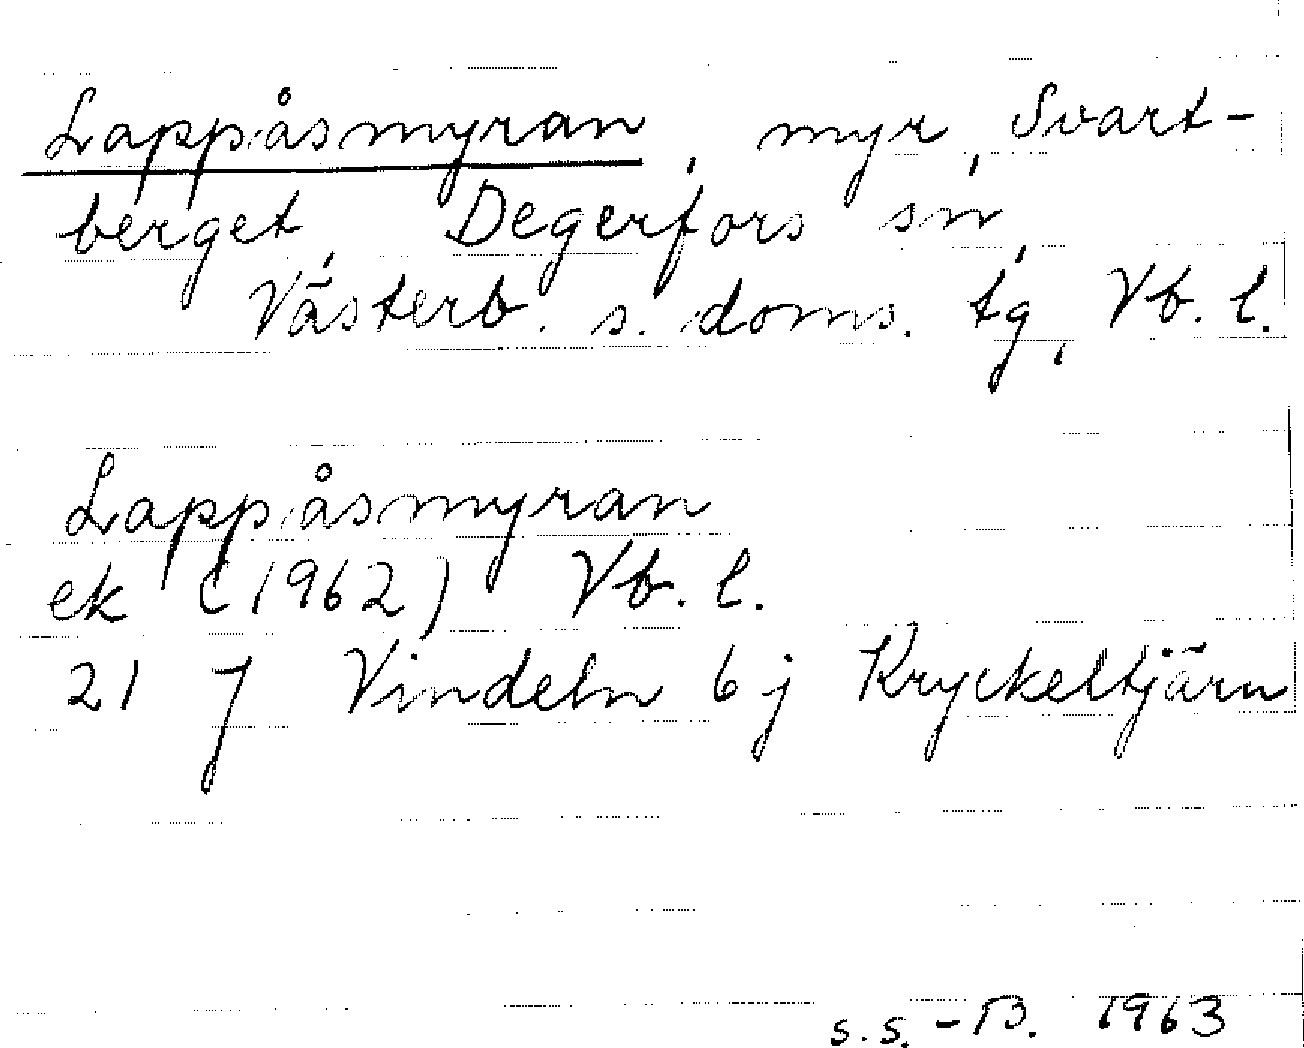 Lappåsmyran, myr, Svart-
berget, Degerfors sn,
Västerb. s. doms. tg, Vb. l.
Lappåsmyran
ek (1962) Vb. l.
21 J Vindeln 6 j Kryckeltjärn
s.s. - B. 1963